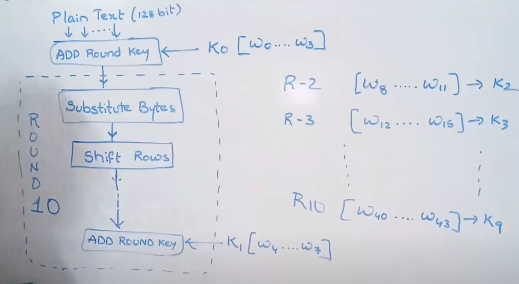 Plain Text (128 bit)
ADD Round Key
K0 [w0....w3]
Substitute Bytes
Shift Rows
ROUND
10
ADD ROUND KEY
K1 [w4....w7]
R-2 [w8.....w11] → K2
R-3 [w12....w15] → K3
R10 [w40....w43] → K9